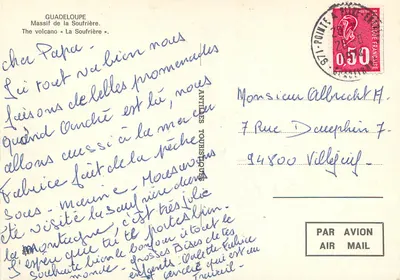 GUADELOUPE
Massif de la Soufrière.
The volcano « La Soufrière ».
cher Papa.
Ici tout va bien nous
faisons de belles promenades
quand André est là, nous
allons aussi à la mer ou
Fabrice fait de la pêche
sous-marine. Nous avons
été visité la soufrière dans
la montagne, c'est très jolie
J'espère que tu te portes bien.
Souhaite bien le bonjour à tout le
monde. grosses Bises de tes
enfants Fabrice
et André qui est au
Travail.
ANTILLES TOURISTIQUES
971-POINTE A
0,50
Monsieur Albrecht A.
7 Rue Dauphin 7.
94800 Villejuif.
PAR AVION
AIR MAIL